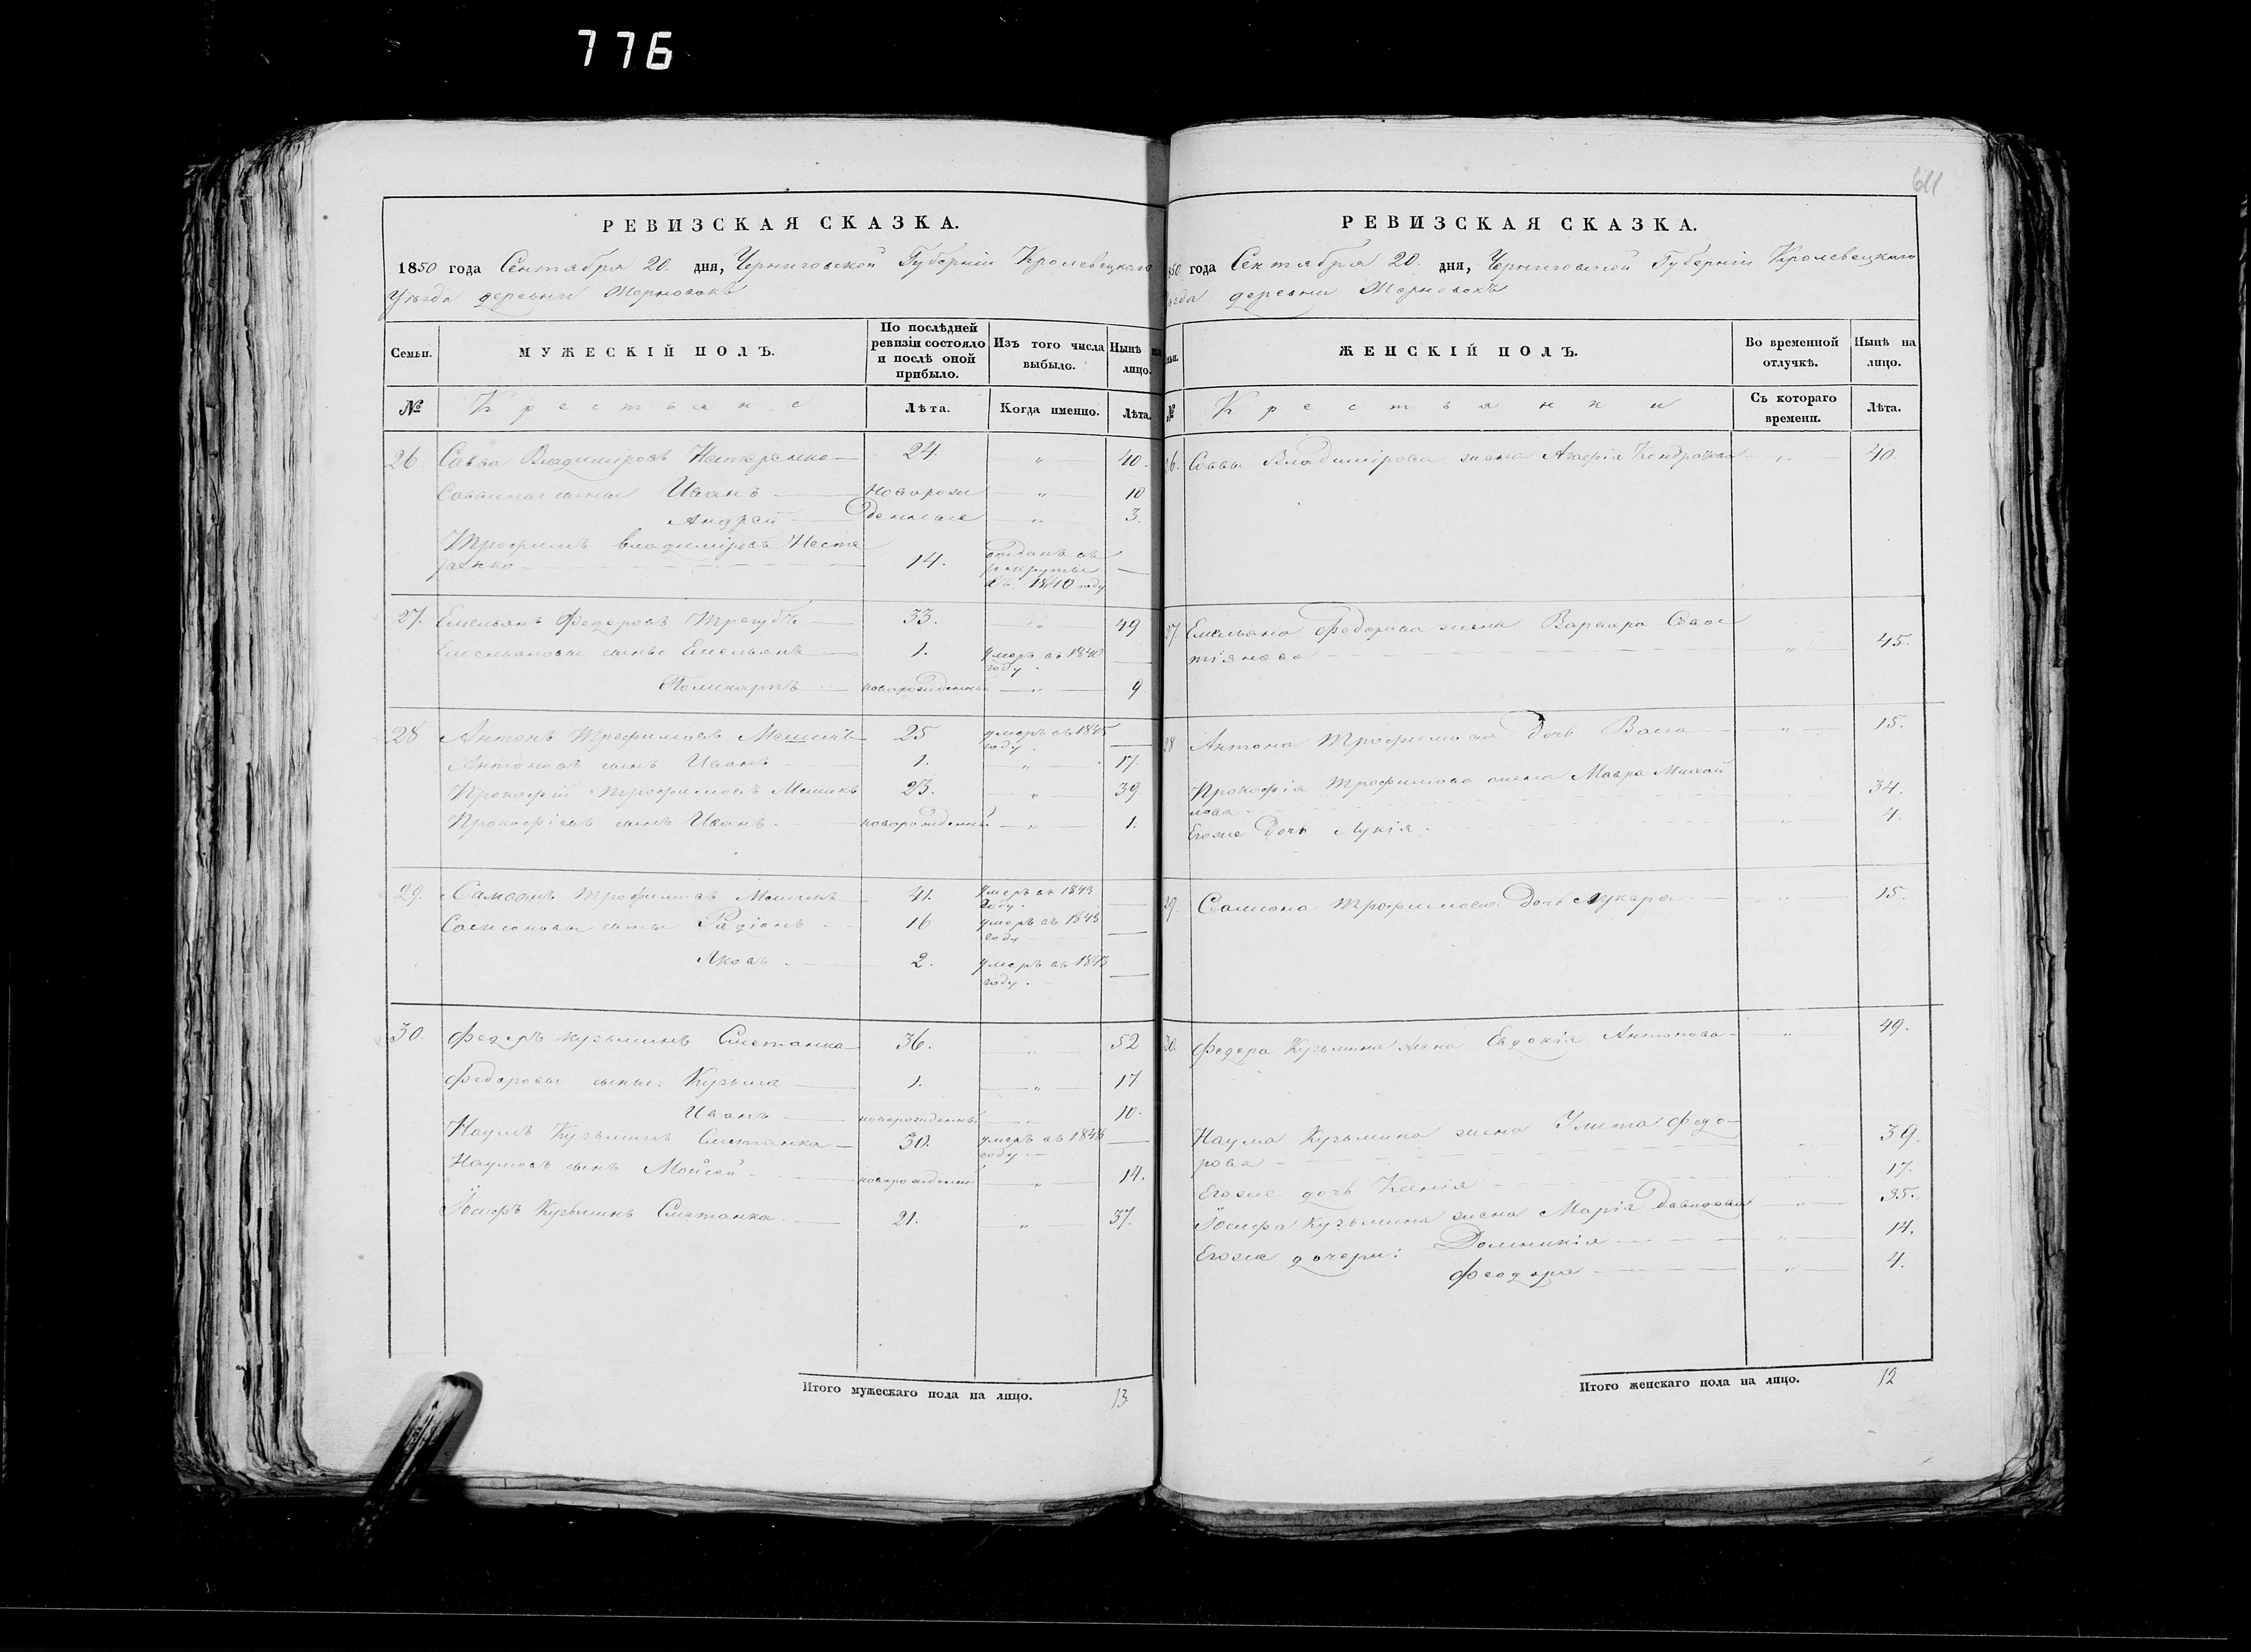 776
611
РЕВИЗСКАЯ СКАЗКА.
1850 года Сентября 20. дня, Черниговской Губерніи Кролевецкаго
Уѣзда деревни Терновокъ
Семьи.
МУЖЕСКІЙ ПОЛЪ.
По послѣдней ревизіи состояло и послѣ оной прибыло.
Изъ того числа выбыло.
Нынѣ на лицо.
№
Крестьяне
Лѣта.
Когда именно.
Лѣта.
26. Савва Владимировъ 24 „ 40.
Саввины сыны Иванъ новорож „ 10
Андрей денные „ 3.
Трофимъ Владиміровъ Несте
ренко 14. отданъ въ
рекруты
въ 1840 году
27. Емельянъ Федоровъ Трегубъ 33. „ 49
Емельяновы сыны Емельянъ 1. умеръ въ 1840
году.
Поликарпъ новорожденный „ 9
28 Антонъ Трофимовъ Мешикъ 25 умеръ въ 1845
году.
Антоновъ сынъ Иванъ 1. „ 17.
Прокофій Трофимовъ Мешикъ 23. „ 39.
Прокофіевъ сынъ Иванъ новорожденный „ 1.
29. Самсонъ Трофимовъ Мешикъ 41. умеръ въ 1843
году.
Самсоновы сыны Радіонъ 16 умеръ въ 1843
году
Яковъ 2. умеръ въ 1843
году.
30. Федоръ Кузьминъ Сметанка 36. „ 52
Федоровы сыны: Кузьма 1. „ 17
Иванъ новорожденный „ 10.
Наумъ Кузьминъ Сметанка 30. умеръ въ 1848
году.
Наумовъ сынъ Мойсей новорожденный „ 14.
Іосифъ Кузьминъ Сметанка 21. „ 37.
Итого мужескаго пола на лицо. 13
РЕВИЗСКАЯ СКАЗКА.
850 года Сентября 20. дня, Черниговской Губерніи Кролевецкаго
ѣзда деревни Терновокъ
ьи.
ЖЕНСКІЙ ПОЛЪ.
Во временной отлучкѣ.
Нынѣ на лицо.
№
Крестьянки
Съ котораго времени.
Лѣта.
26. Саввы Владимірова жена Агафія Кондратова „ 40.
27 Емельяна Федорова жена Варвара Савос
тіянова „ 45.
28 Антона Трофимова дочь Васа „ 15.
Прокофія Трофимова жена Мавра Михай
лова „ 34.
Егоже дочь Лукія „ 4.
29. Самсона Трофимова дочь „ 15.
30. Федора Кузьмина жена Евдокія Антонова „ 49.
Наума Кузьмина жена Улита Федо-
рова „ 39.
Егоже дочь Ксенія 17.
Іосифа Кузьмина жена Марія Давидова „ 35.
Егоже дочери: Домникія „ 14.
Феодора „ 4.
Итого женскаго пола на лицо. 12